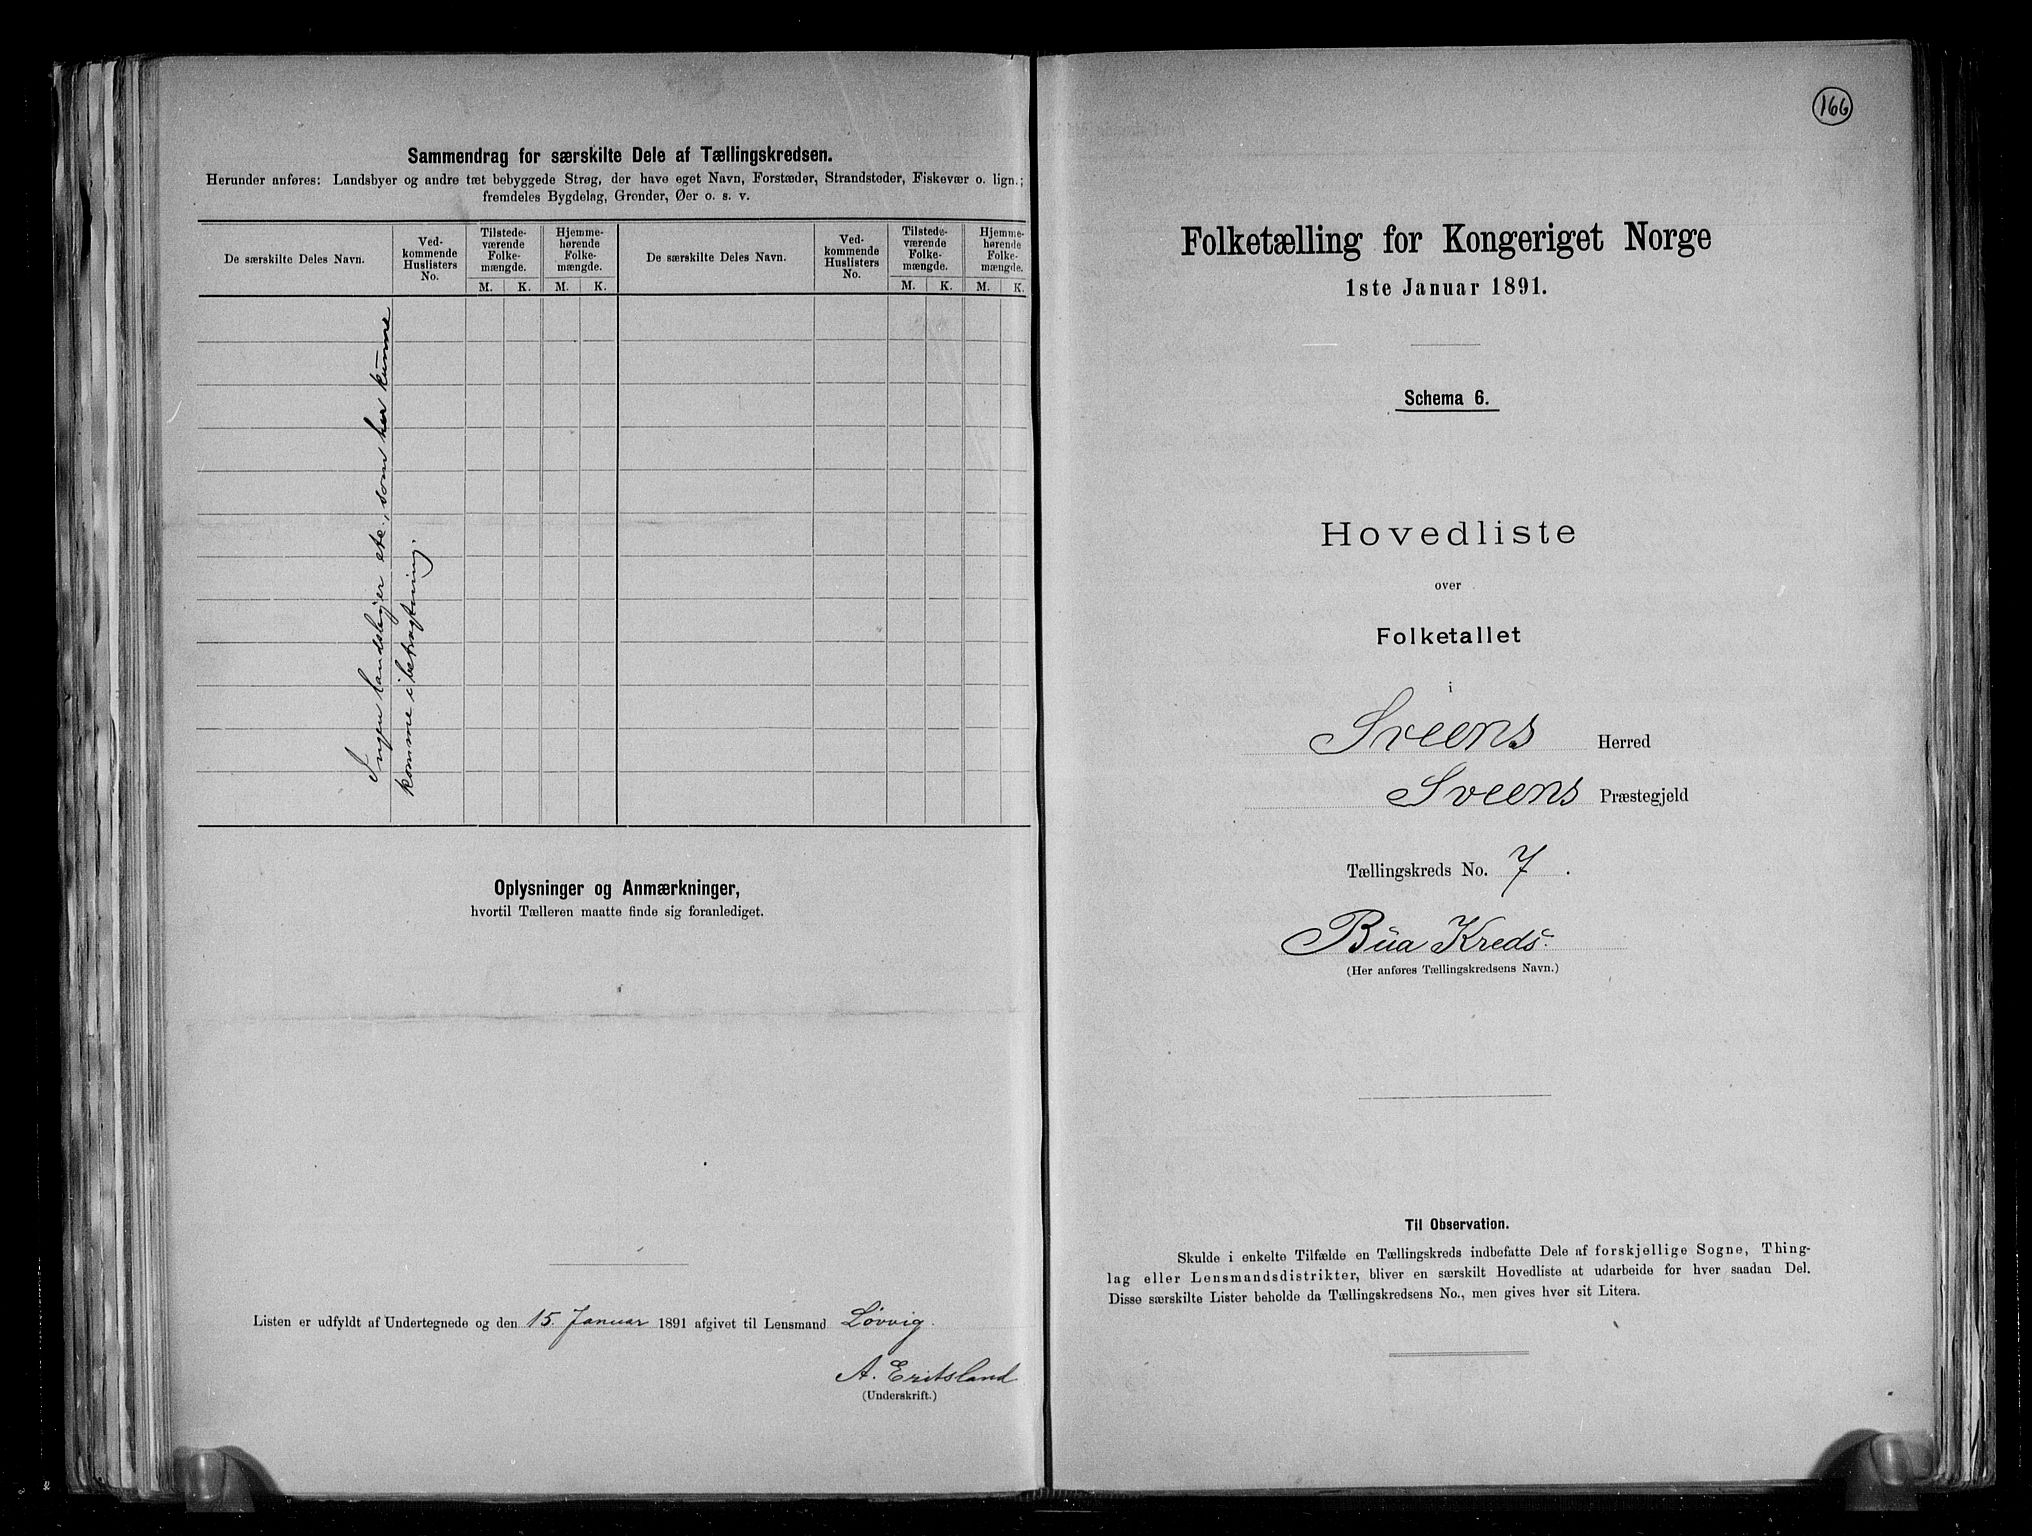 Sammendrag for særskilte Dele af Tællingskredsen.
Herunder anføres: Landsbyer og andre tæt bebyggede Strøg, der have eget Navn, Forstæder, Strandsteder, Fiskevær o. lign.;
fremdeles Bygdelag, Grender, Øer o. s. v.
De særskilte Deles Navn.
Ved-
kommende
Huslisters
No.
Tilstede-
værende
Folke-
mængde.
Hjemme-
hørende
Folke-
mængde.
De særskilte Deles Navn.
Ved-
kommende
Huslisters
No.
Tilstede-
værende
Folke-
mængde.
Hjemme-
hørende
Folke-
mængde.
M. K. M. K. M. K. M. K.
Ingen landsbyer etc., som har kunne
komme i betragtning.
Oplysninger og Anmærkninger,
hvortil Tælleren maatte finde sig foranlediget.
Listen er udfyldt af Undertegnede og den 15. Januar 1891 afgivet til Lensmand Løvvig.
A. Eritsland
(Underskrift.)
166
Folketælling for Kongeriget Norge
1ste Januar 1891.
Schema 6.
Hovedliste
over
Folketallet
i
Sveens Herred
Sveens Præstegjeld
Tællingskreds No. 7.
Bua Kreds.
(Her anføres Tællingskredsens Navn.)
Til Observation.
Skulde i enkelte Tilfælde en Tællingskreds indbefatte Dele af forskjellige Sogne, Thing-
lag eller Lensmandsdistrikter, bliver en særskilt Hovedliste at udarbeide for hver saadan Del.
Disse særskilte Lister beholde da Tællingskredsens No., men gives hver sit Litera.